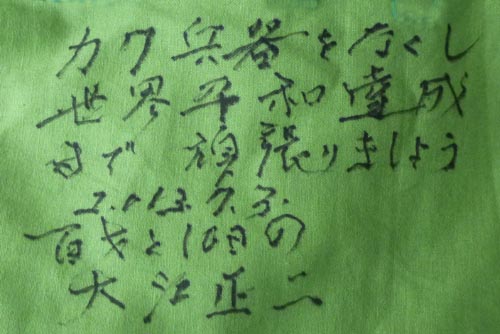 カク兵器をなくし
世界平和達成
まで頑張りましょう
2.013.7.3.
百才と10日の
大江正二